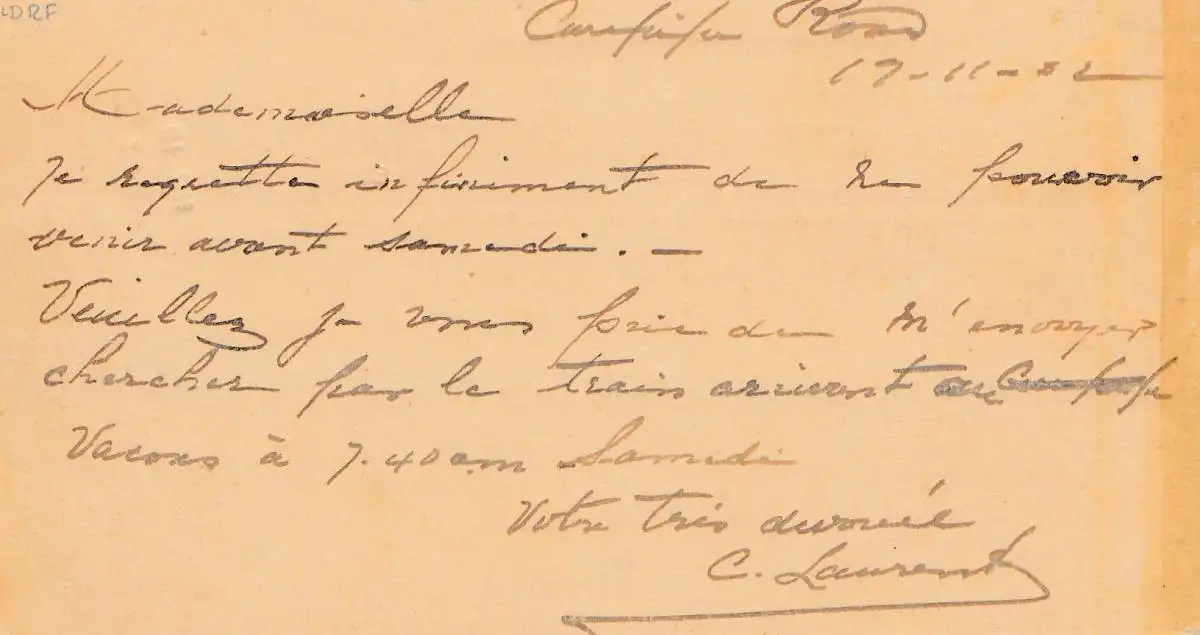 LDRF
Curepipe Road
17-11-22
Mademoiselle
Je regrette infiniment de ne pouvoir
venir avant samedi. —
Veuillez je vous prie de m'envoyer
chercher par le train arrivant au
Vacoas à 7.40 am Samedi
Votre très dévoué
C. Laurent